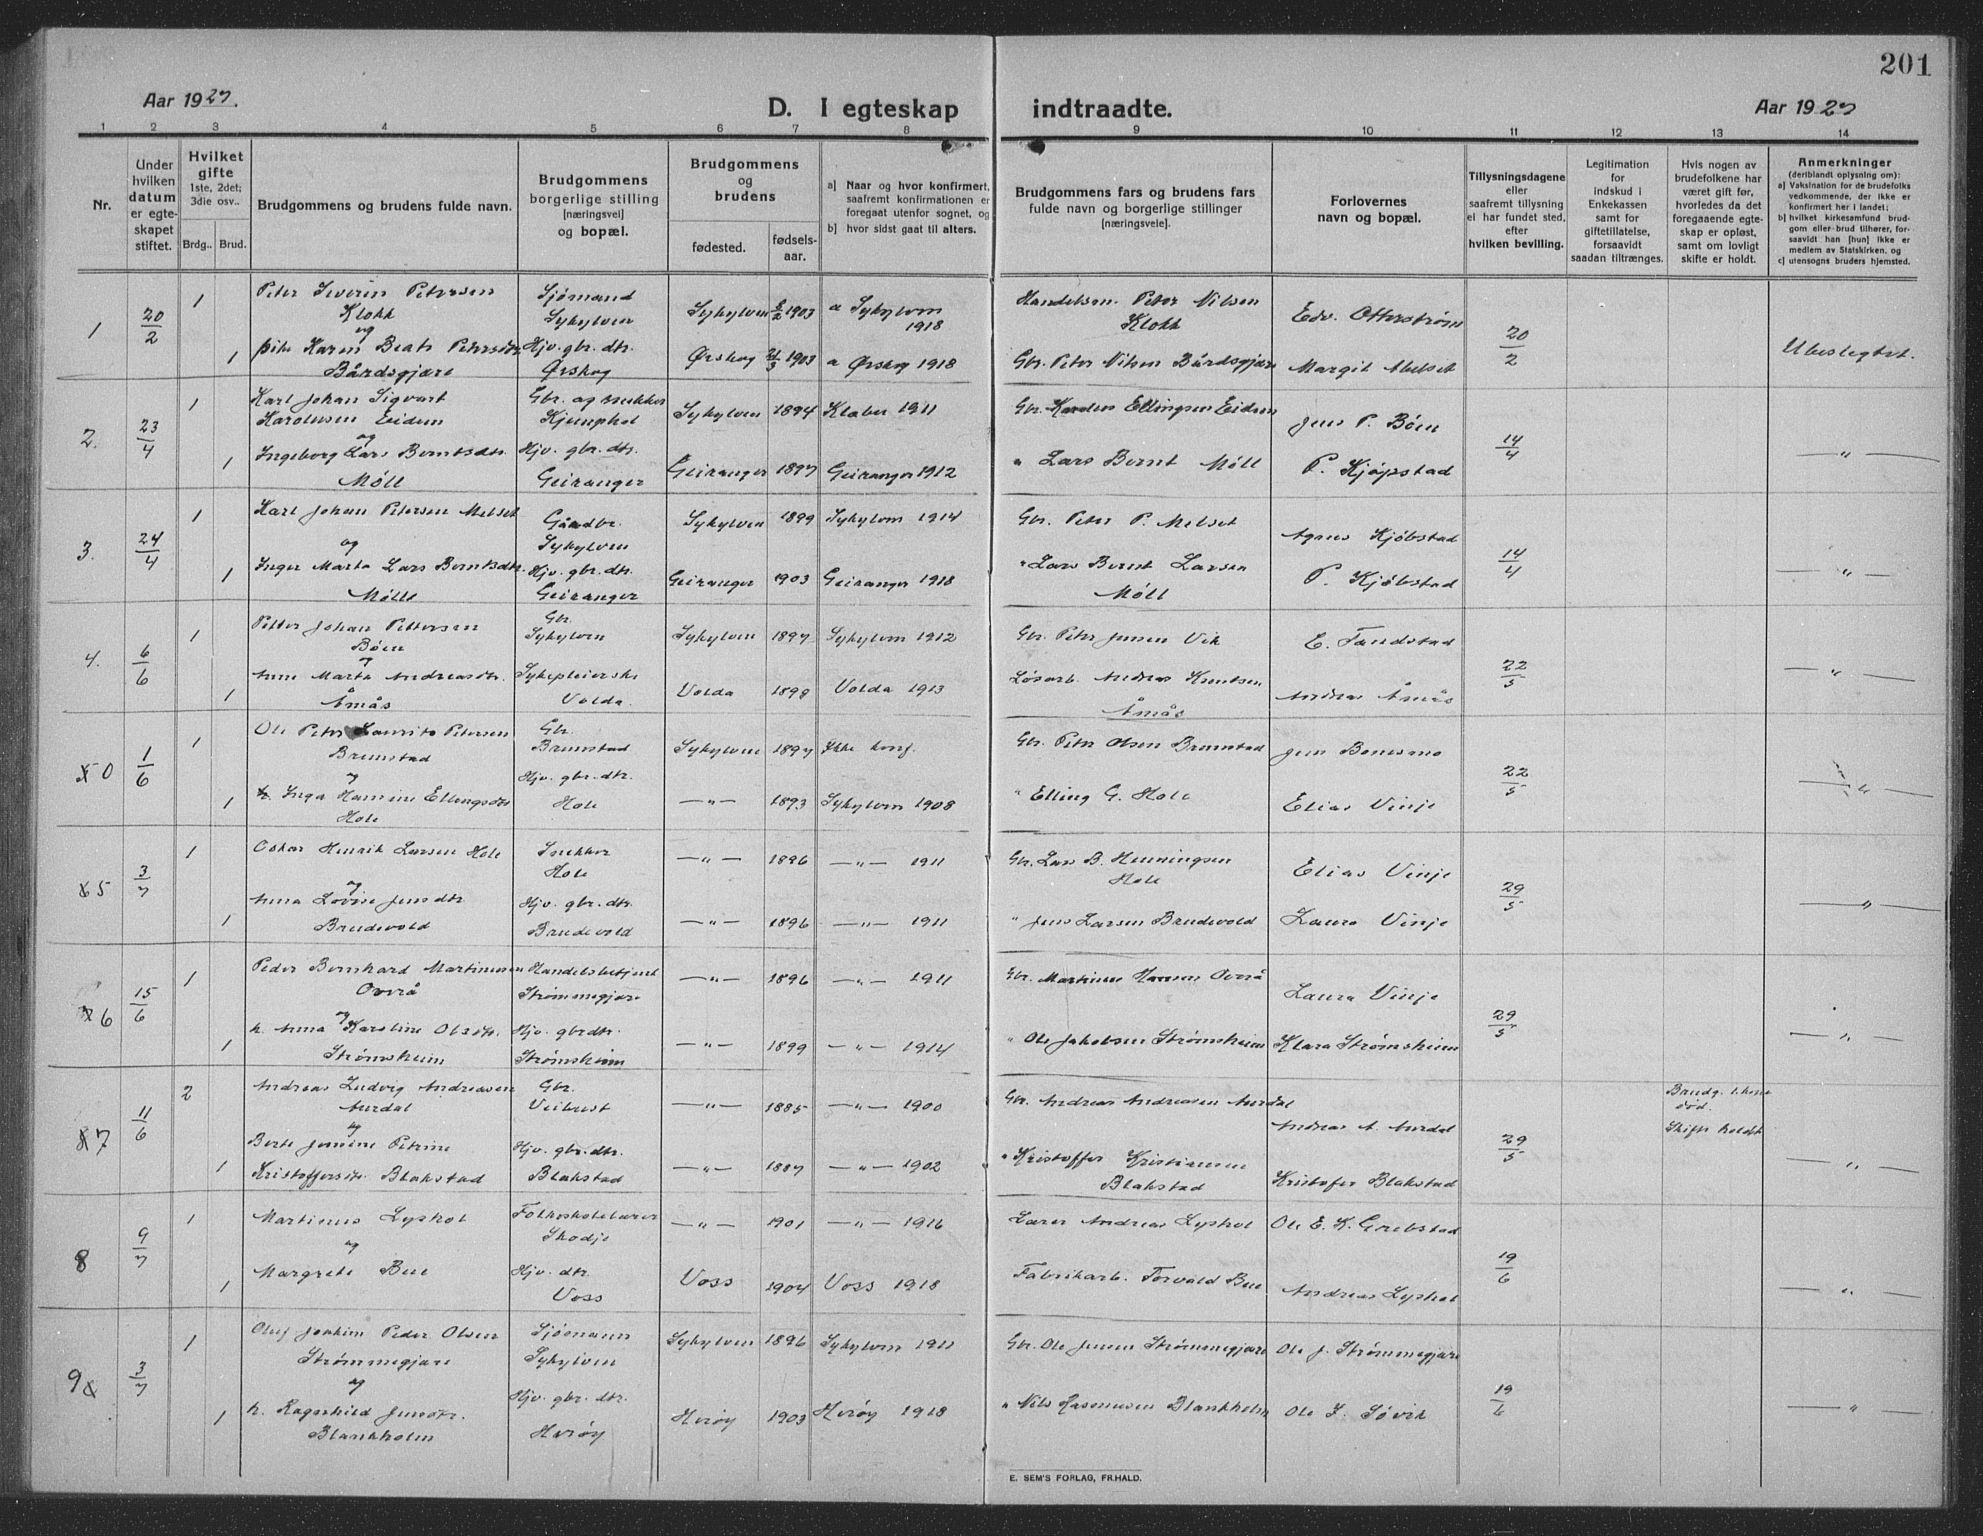 201
Aar 1927.
D. I egteskap indtraadte.
Aar 1927
1 2 3 4 5 6 7 8 9 10 11 12 13 14
Nr.
Under hvilken datum er egteskapet stiftet.
Hvilket gifte 1ste, 2det; 3die osv..
Brdg.. Brud.
Brudgommens og brudens fulde navn.
Brudgommens borgerlige stilling [næringsvei] og bopæl.
Brudgommens og brudens
fødested.
fødselsaar.
a] Naar og hvor konfirmert, saafremt konfirmationen er foregaat utenfor sognet, og
b] hvor sidst gaat til alters.
Brudgommens fars og brudens fars fulde navn og borgerlige stillinger [næringsveie].
Forlovernes navn og bopæl.
Tillysningsdagene eller saafremt tillysning ei har fundet sted, efter hvilken bevilling.
Legitimation for indskud i Enkekassen samt for giftetillatelse, forsaavidt saadan tiltrænges.
Hvis nogen av brudefolkene har været gift før, hvorledes da det foregaaende egteskap er opløst, samt om lovligt skifte er holdt.
Anmerkninger (deriblandt oplysning om):
a] Vaksination for de brudefolks vedkommende, der ikke er konfirmert her i landet;
b] hvilket kirkesamfund brudgom eller brud tilhører, forsaavidt han [hun] ikke er medlem av Statskirken, og
c] utensogns bruders hjemsted.
1 20/2 1 Peter Severin Petersen Sjømand Sykylven 5/2 1903 a Sykylven 1918 Handelsm. Peter Nilsen Edv. Otterstrøm 20/2 Ubeslegtet.
Klokk Sykylven Klokk
og
1 Karen Beate Petersdtr. Hjv. gbr. dtr. Ørskog 1903 a Ørskog 1918 Gbr. Peter Nilsen Bårdsgjære Margit Melset
Bårdsgjære Ørskog
2. 23/4 1 Karl Johan Sigvart Gbr. og snekker Sykylven 1894 Klæber 1911 Gbr. Karolus Ellingsen Eidem Jens P. Bøen 14/4 — " —
Karolusen Eidem
og
1 Ingeborg Lars Berntsdtr. Hjv. gbr. dtr. Geiranger 1897 Geiranger 1912 " Lars Bernt Møll P. Kjøpstad
Møll Geiranger
3. 24/4 1 Karl Johan Petersen Melset Gårdbr. Sykylven 1899 Sykylven 1914 Gbr. Peter P. Melset Agnes Kjøbstad 14/4 — " —
og Sykylven
1 Inger Marta Lars Berntsdtr. Hjv. gbr. dtr. Geiranger 1903 Geiranger 1918 " Lars Bernt Larsen P. Kjøbstad
Møll Geiranger Møll
4. 6/6 1 Petter Johan Pettersen Gbr. Sykylven 1897 Sykylven 1912 Gbr. Peter Jensen Vik E. Tandstad 22/5 — " —
Bøen Sykylven
og
1 Anne Marta Andreasdtr. Sykepleierske Volda 1898 Volda 1913 Løsarb. Andreas Knutsen Andreas Åmås
Åmås Volda. Åmås
50 1/6 1 Ole Peter Laurits Petersen Gbr. Sykylven 1897 Ikke konf. Gbr. Peter Olsen Brunstad Jens Bonesmo 22/5 — " —
Brunstad Brunstad
og
1 Inga Hansine Ellingsdtr. Hjv. gbr. dtr. — " — 1893 Sykylven 1908 " Elling G. Hole Elias Vinje
Hole Hole
5 3/7 1 Oskar Henrik Larsen Hole Snekker — " — 1896 — " — 1911 Gbr. Lars B. Henningsen Elias Vinje 29/5 — " —
og Hole Hole
1 Anna Lovise Jensdtr. Hjv. gbr. dtr. — " — 1896 — " — 1911 " Jens Larsen Brudevold Laura Vinje
Brudevold Brudevold
6 15/6 1 Peder Bernhard Martinusen Handelsbetjent — " — 1896 — " — 1911 Gbr. Martinus Hansen Overå Laura Vinje 29/5 — " —
Overå Strømmegjære
og
1 h. Anna Karoline Olsdtr. Hjv. gbrdtr. — " — 1899 — " — 1914 " Ole Jakobsen Strømsheim Klara Strømsheim
Strømsheim Strømsheim
7 11/6 2 Andreas Ludvig Andreasen Gbr. — " — 1885 — " — 1900 Gbr. Andreas Andreasen Aurdal Andreas A. Aurdal 29/5 Brudg. 1. kone død. Skifte holdt — " —
Aurdal Veibust
og
1 Berte Jensine Petrine Hjv. gbr. dtr. — " — 1887 — " — 1902 " Kristoffer Kristiansen Kristofer Blakstad
Kristoffersdtr. Blakstad Blakstad Blakstad
8 9/7 1 Martinus Lyshol Folkeskolelærer — " — 1901 — " — 1916 Lærer Andreas Lyshol Ole E. K. Grebstad 19/6 — " —
og Skodje
1 Margrete Bue Hjv. dtr. Voss 1904 Voss 1918 Fabrikarb. Torvald Bue Andreas Lyshol
Voss
9 3/7 1 Oluf Joakim Peder Olsen Sjømann Sykylven 1896 Sykylven 1911 Gbr. Ole Jensen Strømmegjære Ole J. Strømmegjære 19/6 — " —
Strømmegjære Sykylven
og
1 h. Ragnhild Jensdtr. Hjv. gbr. dtr. Herøy 1903 Herøy 1918 " Nils Rasmussen Blankholm Ole J. Søvik
Blankholm Herøy
E. SEM'S FORLAG, FR.HALD.